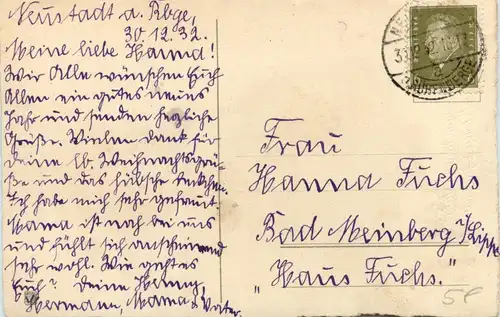 Neustadt a. Rbge,
30.12.32.
Meine liebe Hanna!
Wir Alle wünschen Euch
Allen ein gutes neues
Jahr und senden herzliche
Grüße. Vielen Dank für
deine lb. Weihnachtsgrü-
ße und das hübsche
Ich habe mich sehr gefreut.
Mama ist noch bei uns
und fühlt sich anscheinend
sehr wohl. Wie geht es
Euch? Deine
Hermann, Mama & Vater.
Frau
Hanna Fuchs
Bad Meinberg i/Lippe
"Haus Fuchs."